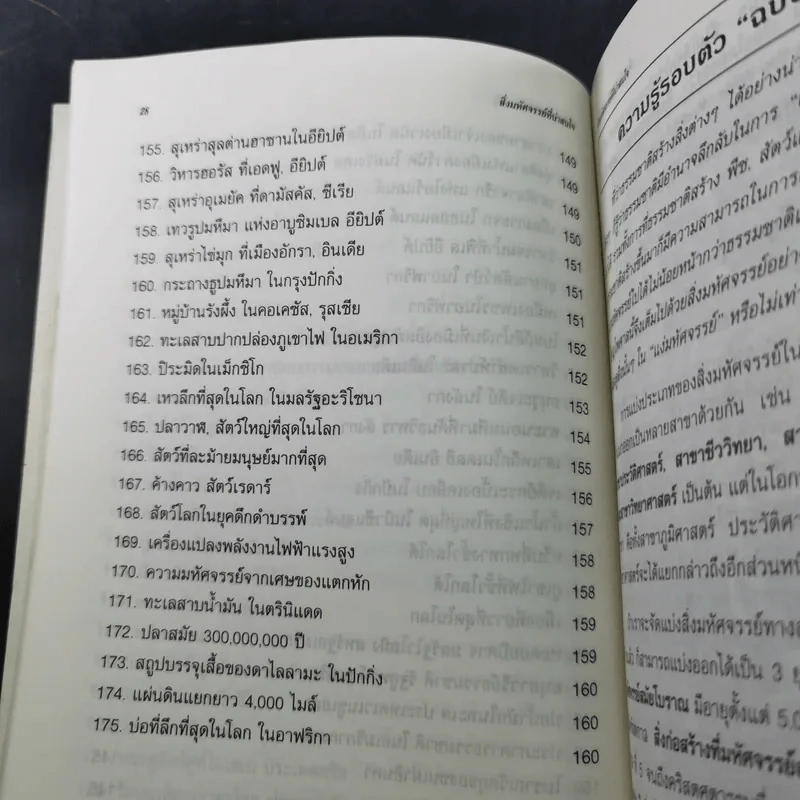 28 สิ่งมหัศจรรย์ที่น่าสนใจ
155. สุเหร่าสุลต่านฮาซานในอียิปต์ 149
156. วิหารฮอรัส ที่เอดฟู, อียิปต์ 149
157. สุเหร่าอุเมยัค ที่ดามัสคัส, ซีเรีย 149
158. เทวรูปมหึมา แห่งอาบูซิมเบล อียิปต์ 150
159. สุเหร่าไข่มุก ที่เมืองอักรา, อินเดีย 151
160. กระถางธูปมหึมา ในกรุงปักกิ่ง 151
161. หมู่บ้านรังผึ้ง ในคอเคซัส, รุสเซีย 151
162. ทะเลสาบปากปล่องภูเขาไฟ ในอเมริกา 152
163. ปิระมิดในเม็กซิโก 152
164. เหวลึกที่สุดในโลก ในมลรัฐอะริโซนา 153
165. ปลาวาฬ, สัตว์ใหญ่ที่สุดในโลก 154
166. สัตว์ที่ละม้ายมนุษย์มากที่สุด 155
167. ค้างคาว สัตว์เรดาร์ 156
168. สัตว์โลกในยุคดึกดำบรรพ์ 157
169. เครื่องแปลงพลังงานไฟฟ้าแรงสูง 158
170. ความมหัศจรรย์จากเศษของแตกหัก 158
171. ทะเลสาบน้ำมัน ในตรินิแดด 159
172. ปลาสมัย 300,000,000 ปี 159
173. สถูปบรรจุเสื้อของดาไลลามะ ในปักกิ่ง 160
174. แผ่นดินแยกยาว 4,000 ไมล์ 160
175. บ่อที่ลึกที่สุดในโลก ในอาฟริกา 160
ความรู้รอบตัว "ฉบับ
ที่ว่าธรรมชาติสร้างสิ่งต่างๆ ได้อย่างน่า
รู้ว่าธรรมชาติมีอำนาจลึกลับในการ
รวมทั้งการที่ธรรมชาติสร้าง พืช, สัตว์
สร้างขึ้นมาก็มีความสามารถในการ
มหัศจรรย์ไปได้ไม่น้อยหน้ากว่าธรรมชาติ
จึงเต็มไปด้วยสิ่งมหัศจรรย์อย่าง
ใน "แง่มหัศจรรย์" หรือไม่เท่า
การแบ่งประเภทของสิ่งมหัศจรรย์ใน
ออกเป็นหลายสาขาด้วยกัน เช่น
ประวัติศาสตร์, สาขาชีววิทยา,
วิทยาศาสตร์ เป็นต้น แต่ในโอก
คือทั้งสาขาภูมิศาสตร์ ประวัติศา
ศาสตร์จะได้แยกกล่าวถึงอีกส่วนหนึ
ถ้าเราจะจัดแบ่งสิ่งมหัศจรรย์ทาง
ก็สามารถแบ่งออกได้เป็น 3 ยุ
สมัยโบราณ มีอายุตั้งแต่ 5,0
สิ่งก่อสร้างที่มหัศจรรย์
ที่ 5 จนถึงคริสตศตวรรษที่